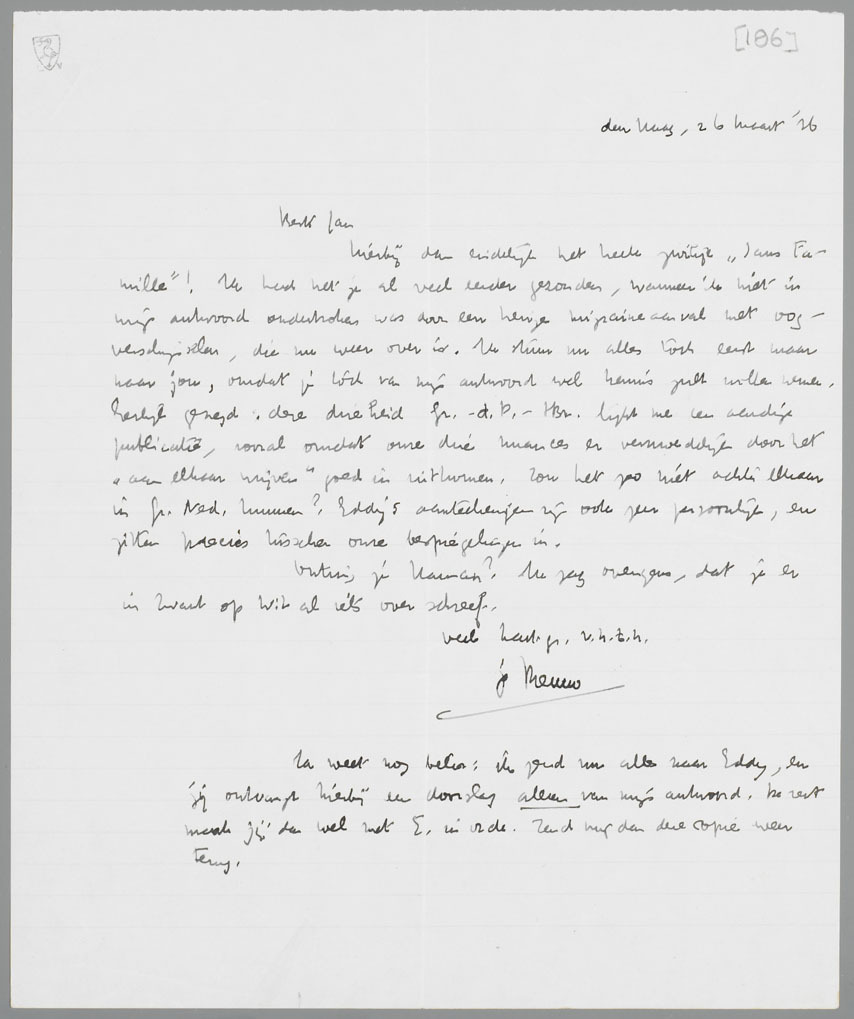 [186]
den Haag, 26 Maart '36
Beste Jan
hierbij dan eindelijk het heele zootje „Sans Fa-
mille"! Ik had het je al veel eerder gezonden, wanneer ik niet in
mijn antwoord onderbroken was door een hevige migraineaanval met oog-
verschijnselen, die nu weer over is. Ik stuur nu alles toch eerst maar
naar jou, omdat je toch van mijn antwoord wel kennis zult willen nemen.
Eerlijk gezegd: deze drieheid Gr. - d. P. - tBr. lijkt me een aardige
publicatie, vooral omdat onze drie nuances er vermoedelijk door het
„aan elkaar wrijven" goed in uitkomen. Zou het zoo niet achter elkaar
in Gr. Ned. kunnen? Eddy's aanteekeningen zijn ook zeer persoonlijk, en
zitten precies tusschen onze bespiegelingen in.
Ontving je Kaucasus? Ik zag overigens, dat je er
in zwart op wit al iets over schreef.
veel hart. gr. v.h.t.h.
je Menno
Ik weet nog beter: ik zend nu alles naar Eddy, en
jij ontvangt hierbij een doorslag alleen van mijn antwoord. De rest
maak jij dan wel met E. in orde. Zend mij dan deze copie weer
terug.